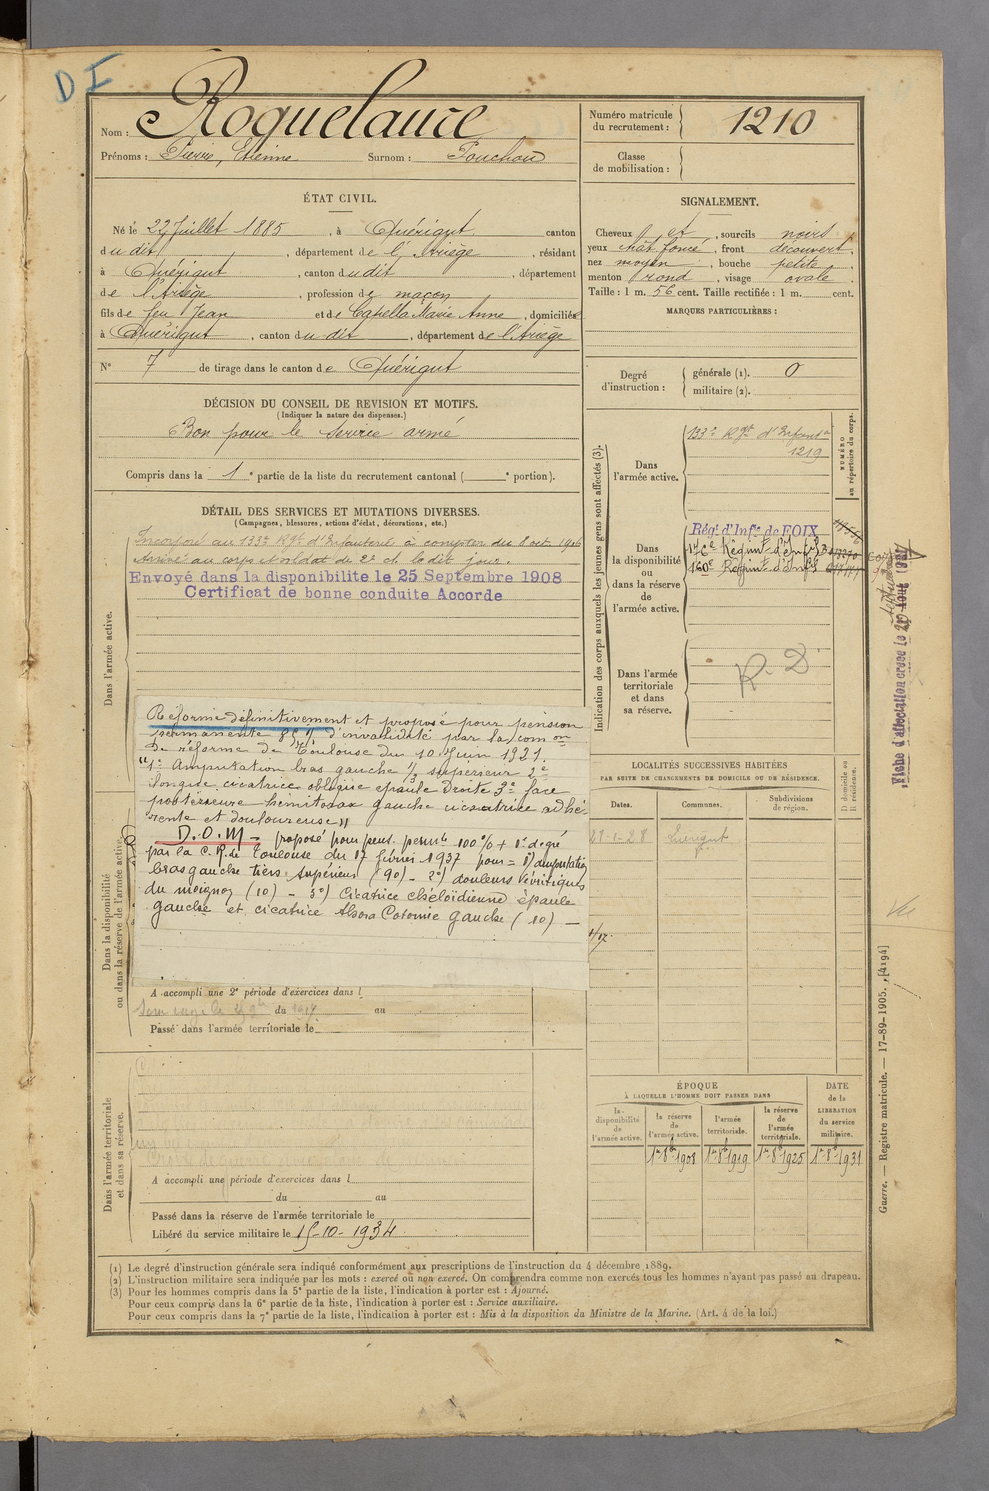 D I
Nom : Roquelaure
Prénoms : Pierre, Etienne Surnom : Pouchou
Numéro matricule du recrutement : 1210
Classe de mobilisation :
ÉTAT CIVIL.
Né le 22 Juillet 1885, à Quérigut canton
dudit, département de l'Ariège, résidant
à Quérigut, canton dudit, département
de l'Ariège, profession de maçon
fils de feu Jean et de Capella Marie Anne, domiciliés
à Quérigut, canton dudit, département de l'Ariège
N° 7 de tirage dans le canton de Quérigut
SIGNALEMENT.
Cheveux et, sourcils noirs
yeux chât. foncé, front découvert,
nez moyen, bouche petite
menton rond, visage ovale
Taille : 1 m. 56 cent. Taille rectifiée : 1 m. cent.
MARQUES PARTICULIÈRES :
Degré d'instruction : générale (1). 0
militaire (2).
DÉCISION DU CONSEIL DE REVISION ET MOTIFS.
(Indiquer la nature des dispenses.)
Bon pour le service armé
Compris dans la 1e partie de la liste du recrutement cantonal ( e portion).
DÉTAIL DES SERVICES ET MUTATIONS DIVERSES.
(Campagnes, blessures, actions d'éclat, décorations, etc.)
Dans l'armée active.
Incorporé au 133e Rgt d'Infanterie à compter du 8 oct. 1906
Arrivé au corps et soldat de 2e cl. le dit jour.
Envoyé dans la disponibilite le 25 Septembre 1908
Certificat de bonne conduite Accorde
Dans la disponibilité ou dans la réserve de l'armée active.
Réformé définitivement et proposé pour pension
permanente d'invalidité par la com on
de réforme de Toulouse du 10 Juin 1921.
"1° Amputation bras gauche 1/3 supérieur 2°
longue cicatrice oblique épaule Droite 3° face
postérieure hémitorax gauche cicatrice adhé-
rente et douloureuse"
D.O.M - proposé pour pens. permte 100% + 1° degré
par la C.R. de Toulouse du 17 février 1937 pour = 1°) amputation
bras gauche tiers supérieur (90) - 2°) douleurs névritiques
du moignon (10) - 3°) Cicatrice chéloïdienne épaule
gauche et cicatrice thoracotomie gauche (10) -
A accompli une 2e période d'exercices dans l
du au
Passé dans l'armée territoriale le
Dans l'armée territoriale et dans sa réserve.
A accompli une période d'exercices dans l
du au
Passé dans la réserve de l'armée territoriale le
Libéré du service militaire le 15-10-1934
Indication des corps auxquels les jeunes gens sont affectés (3).
NUMÉRO au répertoire du corps.
Dans l'armée active.
133e Rgt d'Infanterie
1219
Dans la disponibilité ou dans la réserve de l'armée active.
Régt d'Infie de FOIX
146e Régimt d'Infie
160e Régimt d'Infie
Dans l'armée territoriale et dans sa réserve.
R. D
Fiche d'affectation créée le
LOCALITÉS SUCCESSIVES HABITÉES
PAR SUITE DE CHANGEMENTS DE DOMICILE OU DE RÉSIDENCE.
Dates. Communes. Subdivisions de région. D. domicile ou R. résidence.
21-1-28 Quérigut
ÉPOQUE
À LAQUELLE L'HOMME DOIT PASSER DANS
la disponibilité de l'armée active. la réserve de l'armée active. l'armée territoriale. la réserve de l'armée territoriale. DATE de la LIBÉRATION du service militaire.
1er 8bre 1908 1er 8bre 1919 1er 8bre 1925 1er 8bre 1931
Guerre. — Registre matricule. — 17-89-1905. [4194]
(1) Le degré d'instruction générale sera indiqué conformément aux prescriptions de l'instruction du 4 décembre 1889.
(2) L'instruction militaire sera indiquée par les mots : exercé ou non exercé. On comprendra comme non exercés tous les hommes n'ayant pas passé au drapeau.
(3) Pour les hommes compris dans la 5e partie de la liste, l'indication à porter est : Ajourné.
Pour ceux compris dans la 6e partie de la liste, l'indication à porter est : Service auxiliaire.
Pour ceux compris dans la 7e partie de la liste, l'indication à porter est : Mis à la disposition du Ministre de la Marine. (Art. 4 de la loi.)